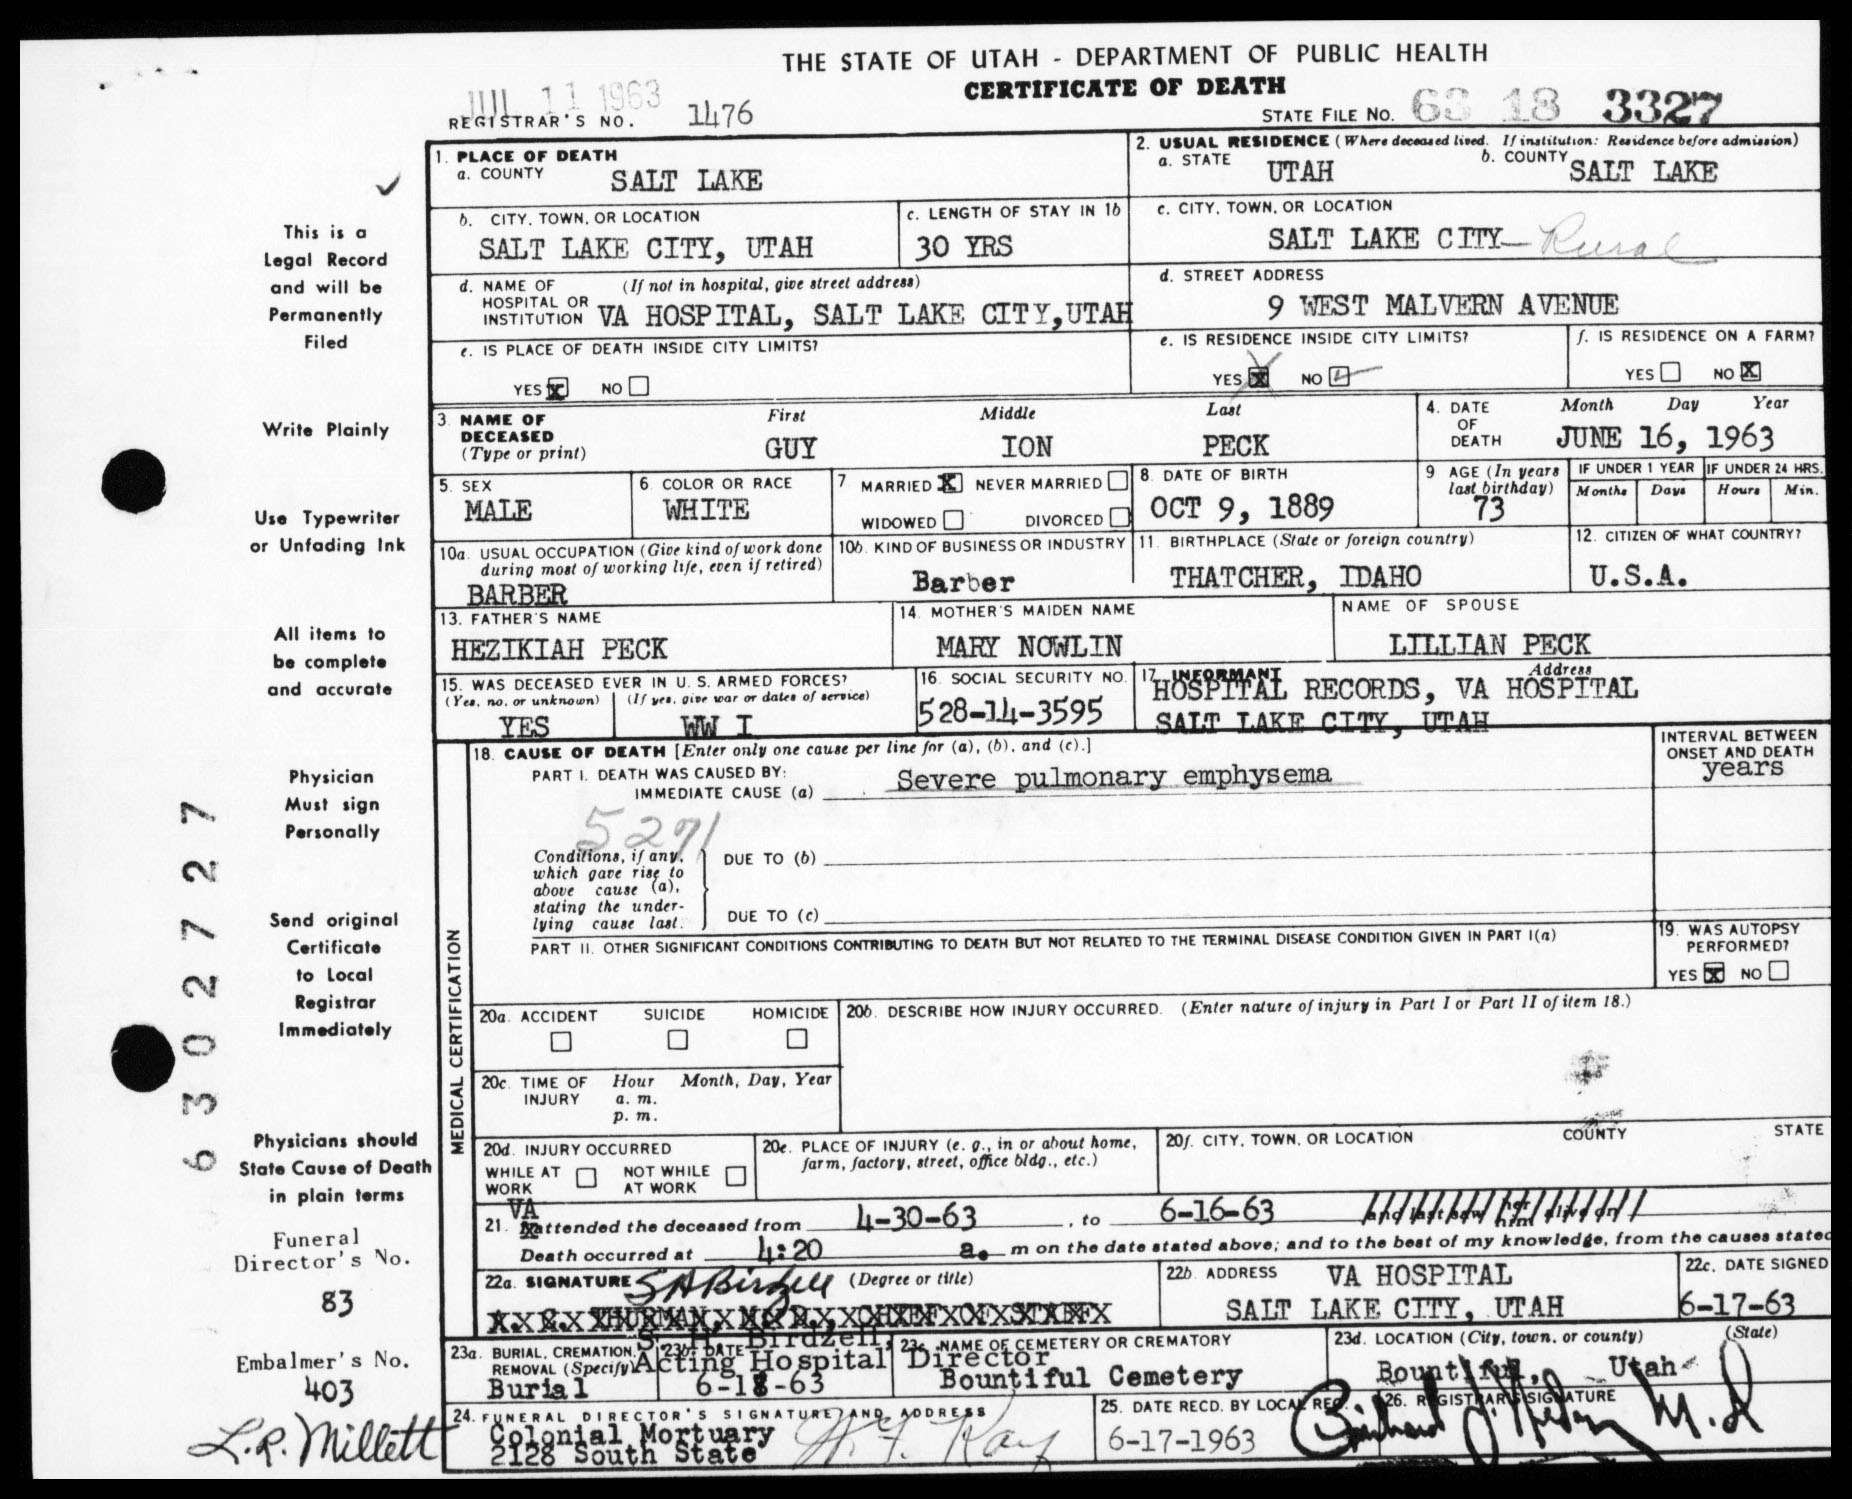 THE STATE OF UTAH - DEPARTMENT OF PUBLIC HEALTH
CERTIFICATE OF DEATH
JUL 11 1963
REGISTRAR'S NO. 1476
STATE FILE NO. 63 18 3327
1. PLACE OF DEATH
a. COUNTY SALT LAKE
2. USUAL RESIDENCE (Where deceased lived. If institution: Residence before admission)
a. STATE UTAH b. COUNTY SALT LAKE
b. CITY, TOWN, OR LOCATION
SALT LAKE CITY, UTAH
c. LENGTH OF STAY IN 1b
30 YRS
c. CITY, TOWN, OR LOCATION
SALT LAKE CITY— Rural
d. NAME OF HOSPITAL OR INSTITUTION (If not in hospital, give street address)
VA HOSPITAL, SALT LAKE CITY, UTAH
d. STREET ADDRESS
9 WEST MALVERN AVENUE
e. IS PLACE OF DEATH INSIDE CITY LIMITS?
YES X NO
e. IS RESIDENCE INSIDE CITY LIMITS?
YES X NO
f. IS RESIDENCE ON A FARM?
YES NO X
3. NAME OF DECEASED (Type or print)
First Middle Last
GUY ION PECK
4. DATE OF DEATH Month Day Year
JUNE 16, 1963
5. SEX
MALE
6. COLOR OR RACE
WHITE
7. MARRIED X NEVER MARRIED
WIDOWED DIVORCED
8. DATE OF BIRTH
OCT 9, 1889
9 AGE (In years last birthday)
73
IF UNDER 1 YEAR
Months Days
IF UNDER 24 HRS.
Hours Min.
10a. USUAL OCCUPATION (Give kind of work done during most of working life, even if retired)
BARBER
10b. KIND OF BUSINESS OR INDUSTRY
Barber
11. BIRTHPLACE (State or foreign country)
THATCHER, IDAHO
12. CITIZEN OF WHAT COUNTRY?
U.S.A.
13. FATHER'S NAME
HEZIKIAH PECK
14. MOTHER'S MAIDEN NAME
MARY NOWLIN
NAME OF SPOUSE
LILLIAN PECK
15. WAS DECEASED EVER IN U. S. ARMED FORCES?
(Yes, no, or unknown) (If yes, give war or dates of service)
YES WW I
16. SOCIAL SECURITY NO.
528-14-3595
17. INFORMANT Address
HOSPITAL RECORDS, VA HOSPITAL
SALT LAKE CITY, UTAH
MEDICAL CERTIFICATION
18. CAUSE OF DEATH [Enter only one cause per line for (a), (b), and (c).]
PART I. DEATH WAS CAUSED BY:
IMMEDIATE CAUSE (a) Severe pulmonary emphysema
INTERVAL BETWEEN ONSET AND DEATH
years
5271
Conditions, if any, which gave rise to above cause (a), stating the underlying cause last.
DUE TO (b)
DUE TO (c)
PART II. OTHER SIGNIFICANT CONDITIONS CONTRIBUTING TO DEATH BUT NOT RELATED TO THE TERMINAL DISEASE CONDITION GIVEN IN PART I(a)
19. WAS AUTOPSY PERFORMED?
YES X NO
20a. ACCIDENT SUICIDE HOMICIDE
20b. DESCRIBE HOW INJURY OCCURRED. (Enter nature of injury in Part I or Part II of item 18.)
20c. TIME OF INJURY Hour Month, Day, Year
a. m.
p. m.
20d. INJURY OCCURRED
WHILE AT WORK NOT WHILE AT WORK
20e. PLACE OF INJURY (e. g., in or about home, farm, factory, street, office bldg., etc.)
20f. CITY, TOWN, OR LOCATION COUNTY STATE
VA
21. attended the deceased from 4-30-63, to 6-16-63 and last saw her him alive on
Death occurred at 4:20 a. m on the date stated above; and to the best of my knowledge, from the causes stated
22a. SIGNATURE S H Birdzell (Degree or title)
S. H. Birdzell,
Acting Hospital Director
22b. ADDRESS VA HOSPITAL
SALT LAKE CITY, UTAH
22c. DATE SIGNED
6-17-63
23a. BURIAL, CREMATION, REMOVAL (Specify)
Burial
23b. DATE
6-18-63
23c. NAME OF CEMETERY OR CREMATORY
Bountiful Cemetery
23d. LOCATION (City, town, or county) (State)
Bountiful, Utah
24. FUNERAL DIRECTOR'S SIGNATURE AND ADDRESS
Colonial Mortuary
2128 South State
25. DATE RECD. BY LOCAL REG.
6-17-1963
26. REGISTRAR'S SIGNATURE
M.D
This is a
Legal Record
and will be
Permanently
Filed
Write Plainly
Use Typewriter
or Unfading Ink
All items to
be complete
and accurate
Physician
Must sign
Personally
Send original
Certificate
to Local
Registrar
Immediately
Physicians should
State Cause of Death
in plain terms
Funeral
Director's No.
83
Embalmer's No.
403
L.R. Millett
6302727